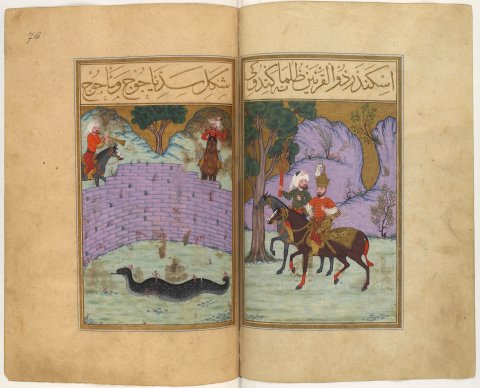 76
اسكندر ذو القرنين ظلماته كتدوكى
شكل سد ياجوج وماجوج